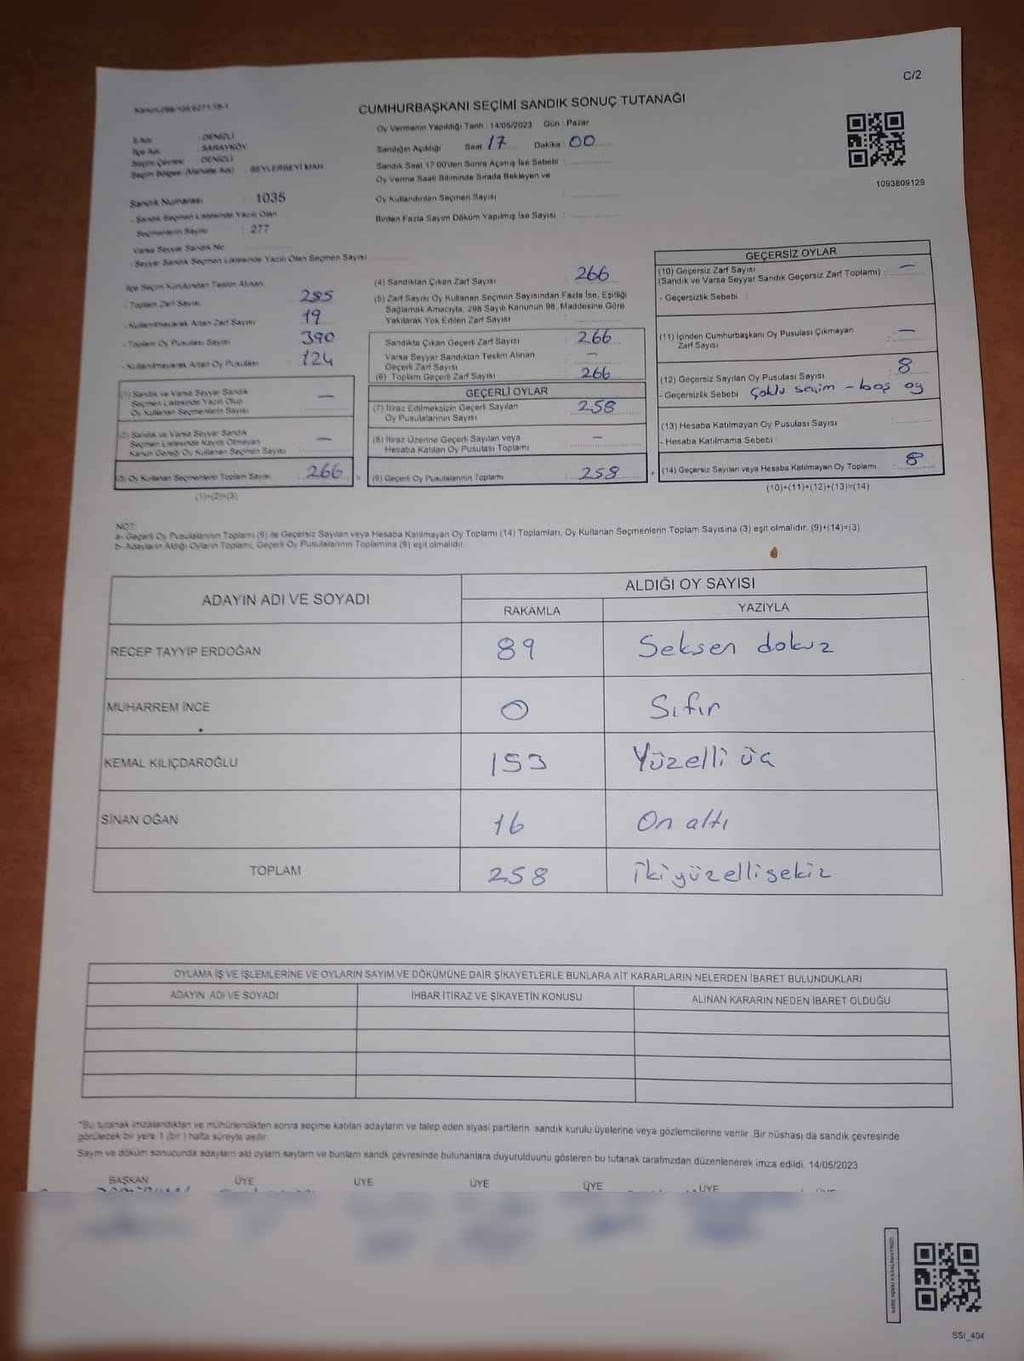 C/2
Kanun 298/105 6271/18-1
CUMHURBAŞKANI SEÇİMİ SANDIK SONUÇ TUTANAĞI
Oy Vermenin Yapıldığı Tarih : 14/05/2023 Gün : Pazar
İl Adı : DENİZLİ
İlçe Adı : SARAYKÖY
Seçim Çevresi : DENİZLİ
Seçim Bölgesi (Mahalle Adı) : BEYLERBEYİ MAH.
Sandığın Açıldığı Saat 17 Dakika 00
Sandık Saat 17:00'den Sonra Açılmış İse Sebebi
Oy Verme Saati Bitiminde Sırada Bekleyen ve
Oy Kullandırılan Seçmen Sayısı
Birden Fazla Sayım Döküm Yapılmış İse Sayısı
1093809129
Sandık Numarası : 1035
- Sandık Seçmen Listesinde Yazılı Olan
Seçmenlerin Sayısı : 277
Varsa Seyyar Sandık No
- Seyyar Sandık Seçmen Listesinde Yazılı Olan Seçmen Sayısı :
İlçe Seçim Kurulundan Teslim Alınan
- Toplam Zarf Sayısı 285
- Kullanılmayarak Artan Zarf Sayısı 19
- Toplam Oy Pusulası Sayısı 390
- Kullanılmayarak Artan Oy Pusulası 124
(1) Sandık ve Varsa Seyyar Sandık
Seçmen Listesinde Yazılı Olup
Oy Kullanan Seçmenlerin Sayısı —
(2) Sandık ve Varsa Seyyar Sandık
Seçmen Listesinde Kayıtlı Olmayan
Kanun Gereği Oy Kullanan Seçmen Sayısı —
(3) Oy Kullanan Seçmenlerin Toplam Sayısı 266
(1)+(2)=(3)
(4) Sandıktan Çıkan Zarf Sayısı 266
(5) Zarf Sayısı Oy Kullanan Seçmen Sayısından Fazla İse, Eşitliği
Sağlamak Amacıyla, 298 Sayılı Kanunun 98. Maddesine Göre
Yakılarak Yok Edilen Zarf Sayısı
Sandıkta Çıkan Geçerli Zarf Sayısı 266
Varsa Seyyar Sandıktan Teslim Alınan
Geçerli Zarf Sayısı —
(6) Toplam Geçerli Zarf Sayısı 266
GEÇERLİ OYLAR
(7) İtiraz Edilmeksizin Geçerli Sayılan
Oy Pusulalarının Sayısı 258
(8) İtiraz Üzerine Geçerli Sayılan veya
Hesaba Katılan Oy Pusulası Toplamı —
(9) Geçerli Oy Pusulalarının Toplamı 258
GEÇERSİZ OYLAR
(10) Geçersiz Zarf Sayısı —
(Sandık ve Varsa Seyyar Sandık Geçersiz Zarf Toplamı)
- Geçersizlik Sebebi :
(11) İçinden Cumhurbaşkanı Oy Pusulası Çıkmayan
Zarf Sayısı —
(12) Geçersiz Sayılan Oy Pusulası Sayısı 8
- Geçersizlik Sebebi Çoklu seçim - boş oy
(13) Hesaba Katılmayan Oy Pusulası Sayısı
- Hesaba Katılmama Sebebi :
(14) Geçersiz Sayılan veya Hesaba Katılmayan Oy Toplamı 8
(10)+(11)+(12)+(13)=(14)
NOT:
a- Geçerli Oy Pusulalarının Toplamı (9) ile Geçersiz Sayılan veya Hesaba Katılmayan Oy Toplamı (14) Toplamları, Oy Kullanan Seçmenlerin Toplam Sayısına (3) eşit olmalıdır. (9)+(14)=(3)
b- Adayların Aldığı Oyların Toplamı, Geçerli Oy Pusulalarının Toplamına (9) eşit olmalıdır.
ADAYIN ADI VE SOYADI
ALDIĞI OY SAYISI
RAKAMLA YAZIYLA
RECEP TAYYİP ERDOĞAN 89 Seksen dokuz
MUHARREM İNCE 0 Sıfır
KEMAL KILIÇDAROĞLU 153 Yüzelli üç
SİNAN OĞAN 16 On altı
TOPLAM 258 ikiyüzellisekiz
OYLAMA İŞ VE İŞLEMLERİNE VE OYLARIN SAYIM VE DÖKÜMÜNE DAİR ŞİKAYETLERLE BUNLARA AİT KARARLARIN NELERDEN İBARET BULUNDUKLARI
ADAYIN ADI VE SOYADI İHBAR İTİRAZ VE ŞİKAYETİN KONUSU ALINAN KARARIN NEDEN İBARET OLDUĞU
*Bu tutanak imzalandıktan ve mühürlendikten sonra seçime katılan adayların ve talep eden siyasi partilerin sandık kurulu üyelerine veya gözlemcilerine verilir. Bir nüshası da sandık çevresinde
görülecek bir yere 1 (bir) hafta süreyle asılır.
Sayım ve döküm sonucunda adayların aldığı oyların sayıları ve bunların sandık çevresinde bulunanlara duyurulduğunu gösteren bu tutanak tarafımızdan düzenlenerek imza edildi. 14/05/2023
BAŞKAN ÜYE ÜYE ÜYE ÜYE ÜYE ÜYE
SSI_404